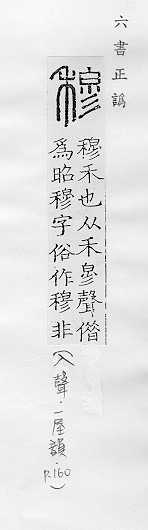 六書正譌
穆
穆禾也从禾㣎聲偕
爲昭穆字俗作穆非
(入聲·一屋韻·P.160)